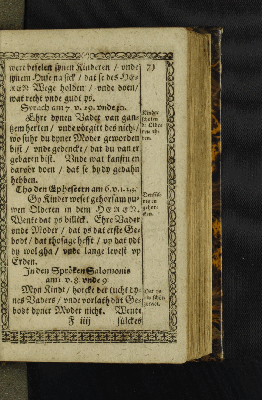 werdt bevelen synen Kinderen / unde
synem Huse na sick / dat se des HE-
REN Wege holden / unde doen /
wat recht unde gudt ys.
Syrach am 7. v. 29. unde 30.
Ehre dynen Vader van gan-
tzem herten / unde vörgitt des nicht /
wo suhr du dyner Moder geworden
bist / und gedencke / dat du van er
gebaren bist. Unde wat kanstu en
darvör doen / dat se by dy gedahn
hebben.
Tho den Ephesern am 6. v. 1. 2. 3.
Gy Kinder weset gehorsam ju-
wen Olderen in dem HEREN.
Wente dat ys billick. Ehre Vader
und Moder / dat ys dat erste Ge-
bodt / dat thosage hefft / up dat ydt
dy wol gha / unde lange levest up
Erden.
In den Spröken Salomonis
am 1. v. 8. unde 9
Myn Kindt / horcke der tucht dy-
nes Vaders / unde vorlath düt Ge-
bodt dyner Moder nicht. Wente
F iiij sülckes